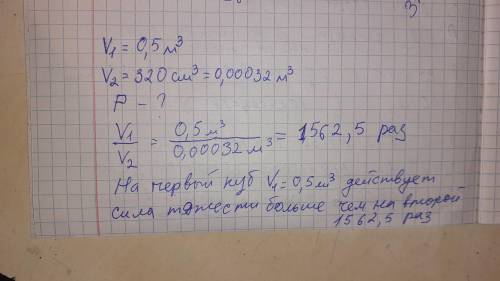 3
V₁ = 0,5 м³
V₂ = 320 см³ = 0,00032 м³
P - ?
V₁/V₂ = 0,5 м³/0,00032 м³ = 1562,5 раз
На первый куб V₁ = 0,5 м³ действует
сила тяжести больше чем на второй
1562,5 раз